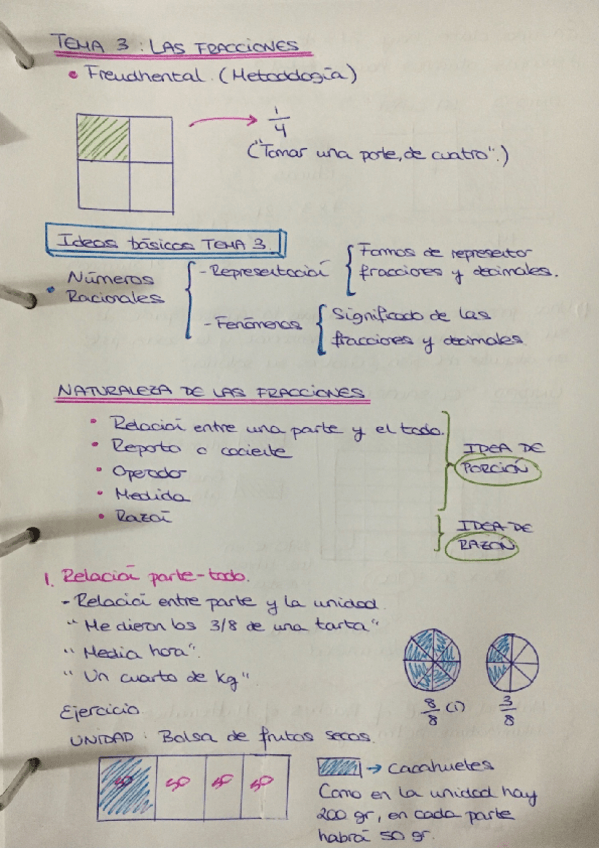 TEMA 3: LAS FRACCIONES
• Freudhental. (Metodología)
1/4
("Tomar una parte, de cuatro".)
Ideas básicas TEMA 3.
• Números Racionales
- Representación
Formas de representar
fracciones y decimales.
- Fenómenos
Significado de las
fracciones y decimales
NATURALEZA DE LAS FRACCIONES
• Relación entre una parte y el todo.
• Reparto o cociente
• Operador
• Medida
• Razón
IDEA DE
PORCIÓN
IDEA DE
RAZÓN
1. Relación parte-todo.
- Relación entre parte y la unidad.
"Me dieron los 3/8 de una tarta"
"Media hora".
"Un cuarto de kg".
8/8 (1)
3/8
Ejercicio.
UNIDAD: Bolsa de frutos secos.
50 50 50 50
→ Cacahuetes
Como en la unidad hay
200 gr, en cada parte
habrá 50 gr.